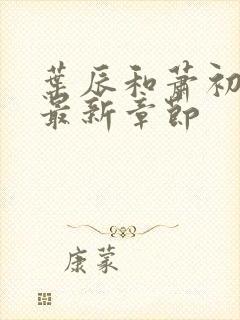 葉辰和蕭初
最新章節
康蒙